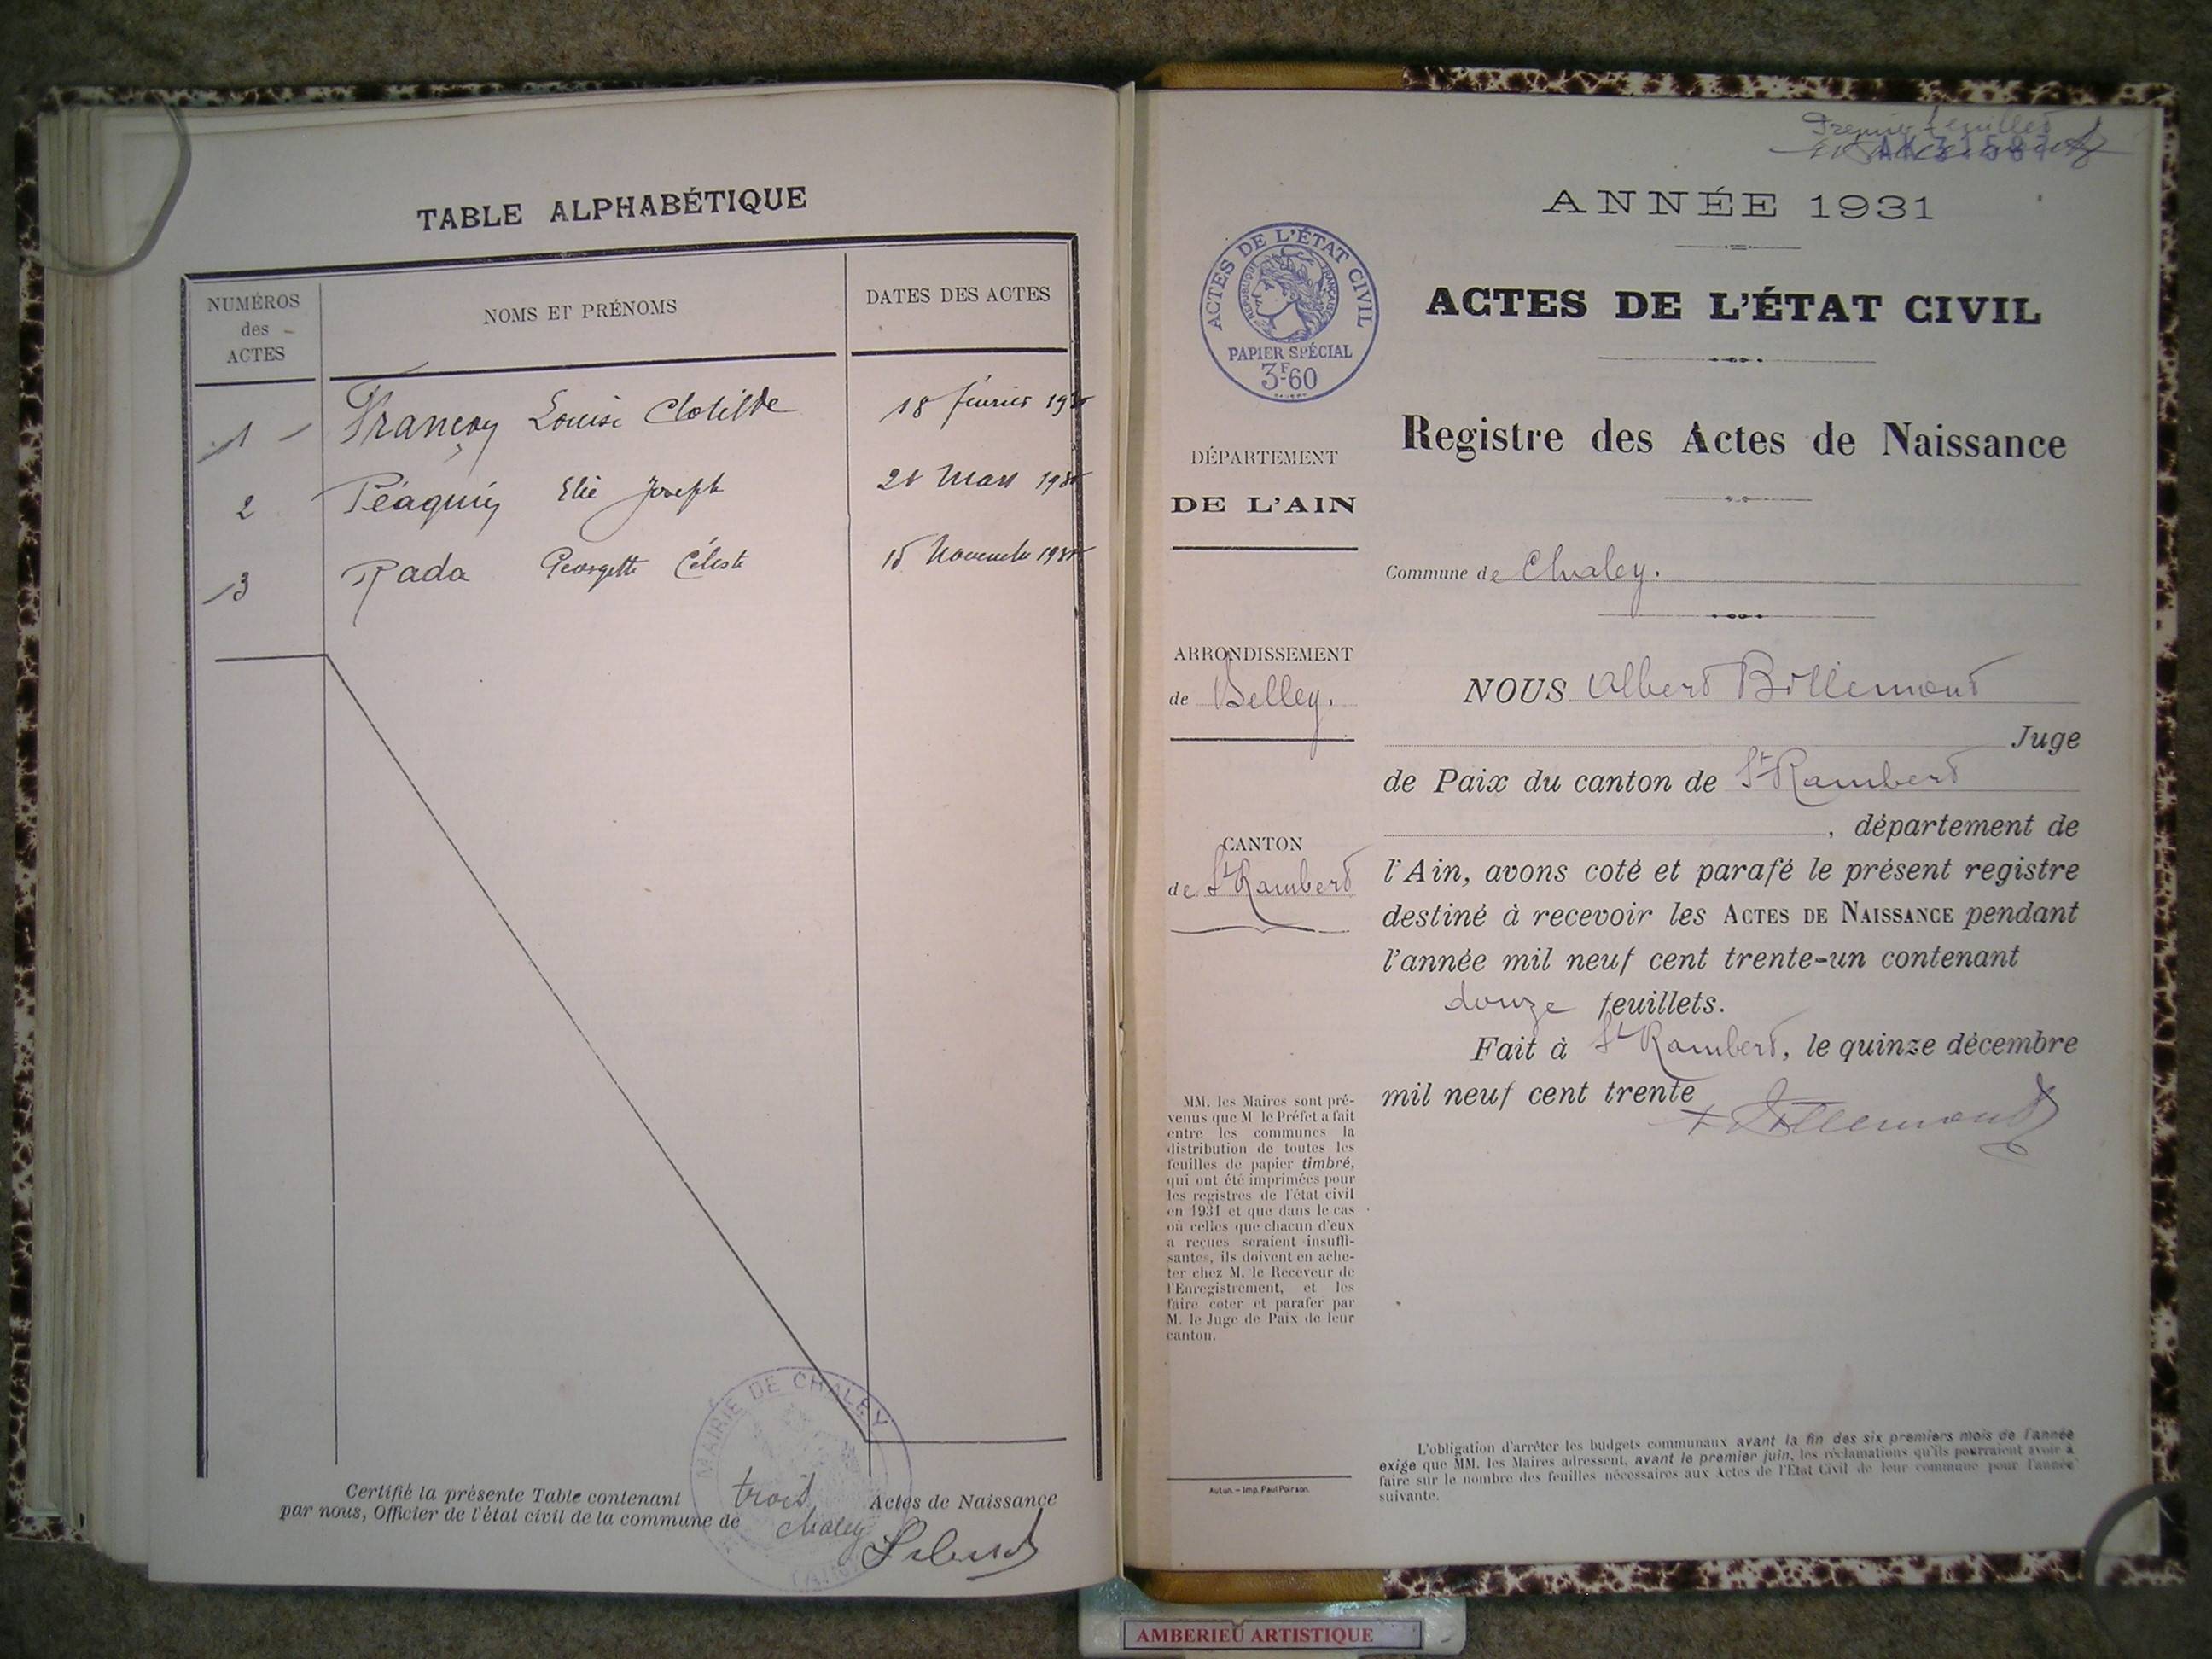 TABLE ALPHABÉTIQUE
NUMÉROS
des
ACTES
NOMS ET PRÉNOMS
DATES DES ACTES
1 Françon Louise Clotilde 18 février
2 Péaquin Elie Joseph 21 Mars
3 Rada Georgette Céleste 15 Novembre
MAIRIE DE CHALEY
Certifié la présente Table contenant trois Actes de Naissance
par nous, Officier de l'état civil de la commune de Chaley
Premier feuillet
ANNÉE 1931
ACTES DE L'ÉTAT CIVIL
RÉPUBLIQUE FRANÇAISE
PAPIER SPÉCIAL
3F60
ACTES DE L'ÉTAT CIVIL
Registre des Actes de Naissance
DÉPARTEMENT
DE L'AIN
Commune de Chaley.
ARRONDISSEMENT
de Belley.
CANTON
de St Rambert
NOUS Albert Billemont
Juge
de Paix du canton de St Rambert
, département de
l'Ain, avons coté et parafé le présent registre
destiné à recevoir les ACTES DE NAISSANCE pendant
l'année mil neuf cent trente-un contenant
douze feuillets.
Fait à St Rambert, le quinze décembre
mil neuf cent trente
MM. les Maires sont pré-
venus que M le Préfet a fait
entre les communes la
distribution de toutes les
feuilles de papier timbré,
qui ont été imprimées pour
les registres de l'état civil
en 1931 et que dans le cas
où celles que chacun d'eux
a reçues seraient insuffi-
santes, ils doivent en ache-
ter chez M. le Receveur de
l'Enregistrement, et les
faire coter et parafer par
M. le Juge de Paix de leur
canton.
Autun. – Imp. Paul Poirson.
L'obligation d'arrêter les budgets communaux avant la fin des six premiers mois de l'année
exige que MM. les Maires adressent, avant le premier juin, les réclamations qu'ils pourraient avoir à
faire sur le nombre des feuilles nécessaires aux Actes de l'Etat Civil de leur commune pour l'année
suivante.
AMBERIEU ARTISTIQUE